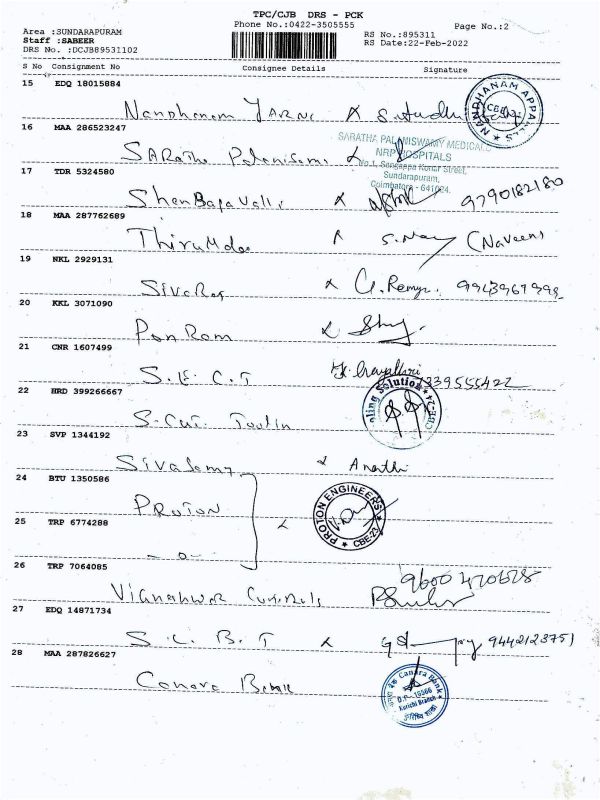 TPC/CJB DRS - PCK
Phone No.:0422-3505555
Page No.:2
Area :SUNDARAPURAM
Staff :SABEER
DRS No. :DCJB89531102
RS No.:895311
RS Date:22-Feb-2022
S No Consignment No Consignee Details Signature
15 EDQ 18015884
Nandhanam YARNS
NANDHANAM APPARELLS
16 MAA 286523247
SARATHA PALANISWAMY MEDICAL
NRP HOSPITALS
No.1, Sengappa Konar Street,
Sundarapuram,
Coimbatore - 641024.
SARatha Palanisami
17 TDR 5324580
ShenBagaValli 9790182180
18 MAA 287762689
ThiruMdee (Naveen)
19 NKL 2929131
SivaRaj G. Remya
20 KKL 3071090
PonRam
21 CNR 1607499
S.E.C.T
22 HRD 399266667
23 SVP 1344192
Sivasamy
24 BTU 1350586
PROTON
PROTON ENGINEERS
CBE-23
25 TRP 6774288
-0-
26 TRP 7064085
27 EDQ 14871734
S.C.B.T 9442123751
28 MAA 287826627
Canara Bank
Canara Bank
Kurichi Branch